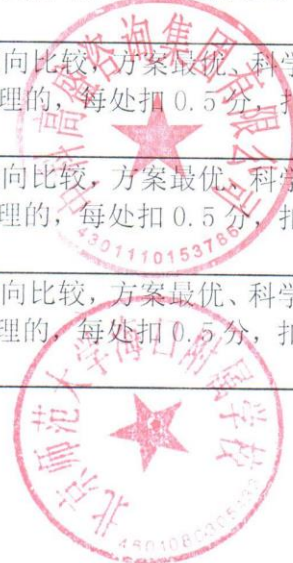 向比较，方案最优、科学
理的，每处扣 0.5 分，扣
向比较，方案最优、科学
理的，每处扣 0.5 分，扣
向比较，方案最优、科学
理的，每处扣 0.5 分，扣
高盛咨询集团有限公司
43011101537
北京师范大学海口附属学校